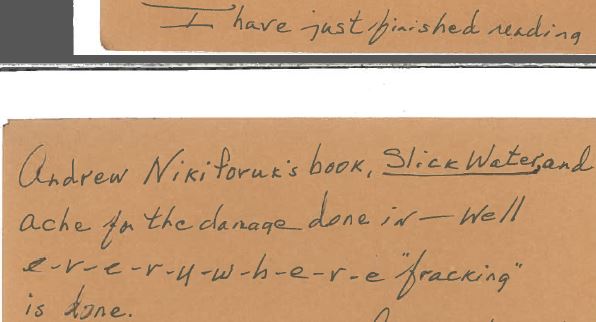 I have just finished reading
Andrew Nikiforuk's book, Slick Water, and
ache for the damage done in — Well
e-v-e-r-y-w-h-e-r-e "fracking"
is done.